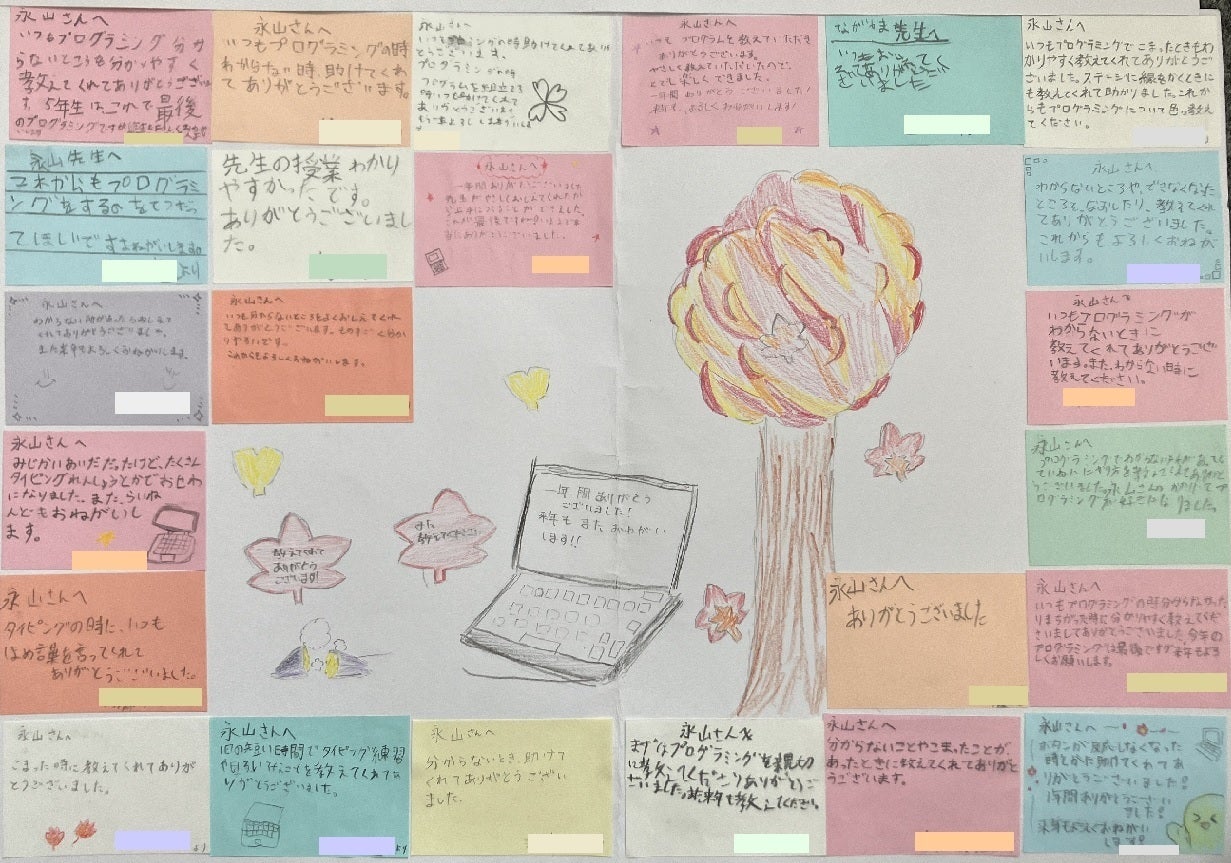 永山さんへ
いつもプログラミング分か
らないところを分かりやすく
教えてくれてありがとうございま
す。5年生はこれで最後
のプログラミングですが
永山さんへ
いつもプログラミングの時
わからない時、助けてくれ
てありがとうございます。
永山さんへ
いつも
の時助けてくれてあり
がとうございます。
プログラミングの時
永山さんへ
いつもプログラムを教えていただき
ありがとうございます。
やさしく教えていただいたので、
とても楽しくできました。
一年間ありがとうございました!
来年もよろしくおねがいします!
ながやま先生へ
ありがとうござ
いました
永山さんへ
いつもプログラミングでこまったときもわ
かりやすく教えてくれてありがとうござ
いました。ステージに線をかくときに
も教えてくれて助かりました。これか
らもプログラミングについて色々教え
てください。
永山先生へ
これからもプログラミ
ングをするのをてつだっ
てほしいです おねがいします。
より
先生の授業わかり
やすかったです。
ありがとうございまし
た。
永山さんへ
一年間ありがとうございました
永山さんへ
わからないところや、できなくなった
ところを、なおしたり、教えてくれ
てありがとうございました。
これからもよろしくおねが
いします。
永山さんへ
わからない所があったらおしえて
くれてありがとうございました。
また来年もよろしくおねがいします。
永山さんへ
いつも分からないところをよくおしえてくれ
てありがとうございます。ものすごく分かり
やすいです。
これからもよろしくおねがいします。
永山さんへ
いつもプログラミングが
わからないときに
教えてくれてありがとうござ
います。また、わからない時に
教えてください。
永山さんへ
みじかいあいだだったけど、たくさん
タイピングれんしゅうとかでおせわ
になりました。また、らいね
んどもおねがいし
ます。
永山さんへ
プログラミングでわからない
一年間ありがとう
ございました!
来年もまたおねがい
します!!
教えてくれて
ありがとう
ございます!
また
教えてください!
永山さんへ
タイピングの時に、いつも
ほめ言葉を言ってくれて
ありがとうございました。
永山さんへ
ありがとうございました
永山さんへ
いつもプログラミングの時分からなかった
りまちがった時に分かりやすく教えてくださ
いましてありがとうございました。今年の
プログラミングは最後ですが来年もよろ
しくお願いします。
永山さんへ
こまった時に教えてくれてありが
とうございました。
より
永山さんへ
1日の短い時間でタイピング練習
やいろいろなことを教えてくれてあ
りがとうございました。
より
永山さんへ
分からないとき、助けて
くれてありがとうござい
ました。
永山さんへ
まずなプログラミングを親切
に教えてくださりありがとうご
ざいました。来年も教えてください。
永山さんへ
分からないことやこまったことが、
あったときに教えてくれてありがと
うございます。
永山さんへ
ボタンが反応しなくなった
時とかた助けてくれてあ
りがとうございました!
1年間ありがとうござい
ました!
来年もよろしくおねがい
します!